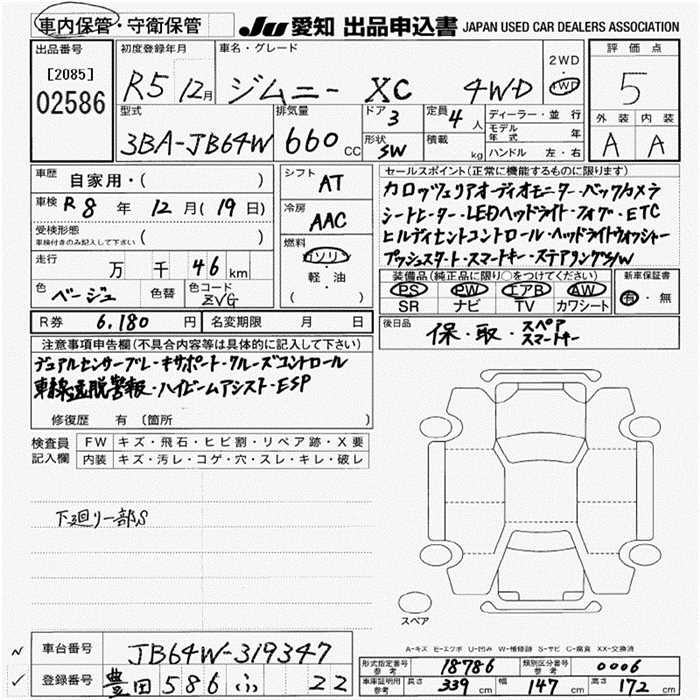 車内保管・守衛保管 JU 愛知 出品申込書 JAPAN USED CAR DEALERS ASSOCIATION
出品番号 初度登録年月 車名・グレード 2WD・4WD 評価点
[2085]
02586 R5 12月 ジムニー XC 4WD 5
型式 3BA-JB64W 排気量 660 CC ドア 3 定員 4人 ディーラー・並行 外装 内装
形状 SW 積載 kg モデル年式 年 A A
ハンドル 左・右
車歴 自家用・( ) シフト AT セールスポイント(正常に機能するものに限ります)
車検 R8年 12月(19日) 冷房 AAC カロッツェリアオーディオモニター・バックカメラ
受検形態 ( ) シートヒーター・LEDヘッドライト・フォグ・ETC
車検付きのみ記入して下さい 燃料 ガソリン ヒルディセントコントロール・ヘッドライトウォッシャー
走行 万 千 46 km 軽・油 プッシュスタート・スマートキー・ステアリングS/W
色 ベージュ 色替 色コード ZVG ( ) 装備品(純正品に限り○をつけてください) 新車保証書
PS PW エアB AW 有・無
SR ナビ TV カワシート
R券 6,180円 名変期限 月 日 後日品 保・取・スペア
スマートキー
注意事項申告欄(不具合内容等は具体的に記入して下さい)
デュアルセンサーブレーキサポート・クルーズコントロール
車線逸脱警報・ハイビームアシスト・ESP
修復歴 有 〔箇所 〕
検査員 FW キズ・飛石・ヒビ割・リペア跡・X要
記入欄 内装 キズ・汚レ・コゲ・穴・スレ・キレ・破レ
下廻り一部S
スペア
A-キズ E-エクボ U-凹み W-補修跡 S-サビ C-腐食 XX-交換済
車台番号 JB64W-319347 型式指定番号 参考 18786 類別区分番号 参考 0006
登録番号 豊田 586 ふ 22 車庫証明用 参考 長さ 339 cm 幅 147 cm 高さ 172 cm